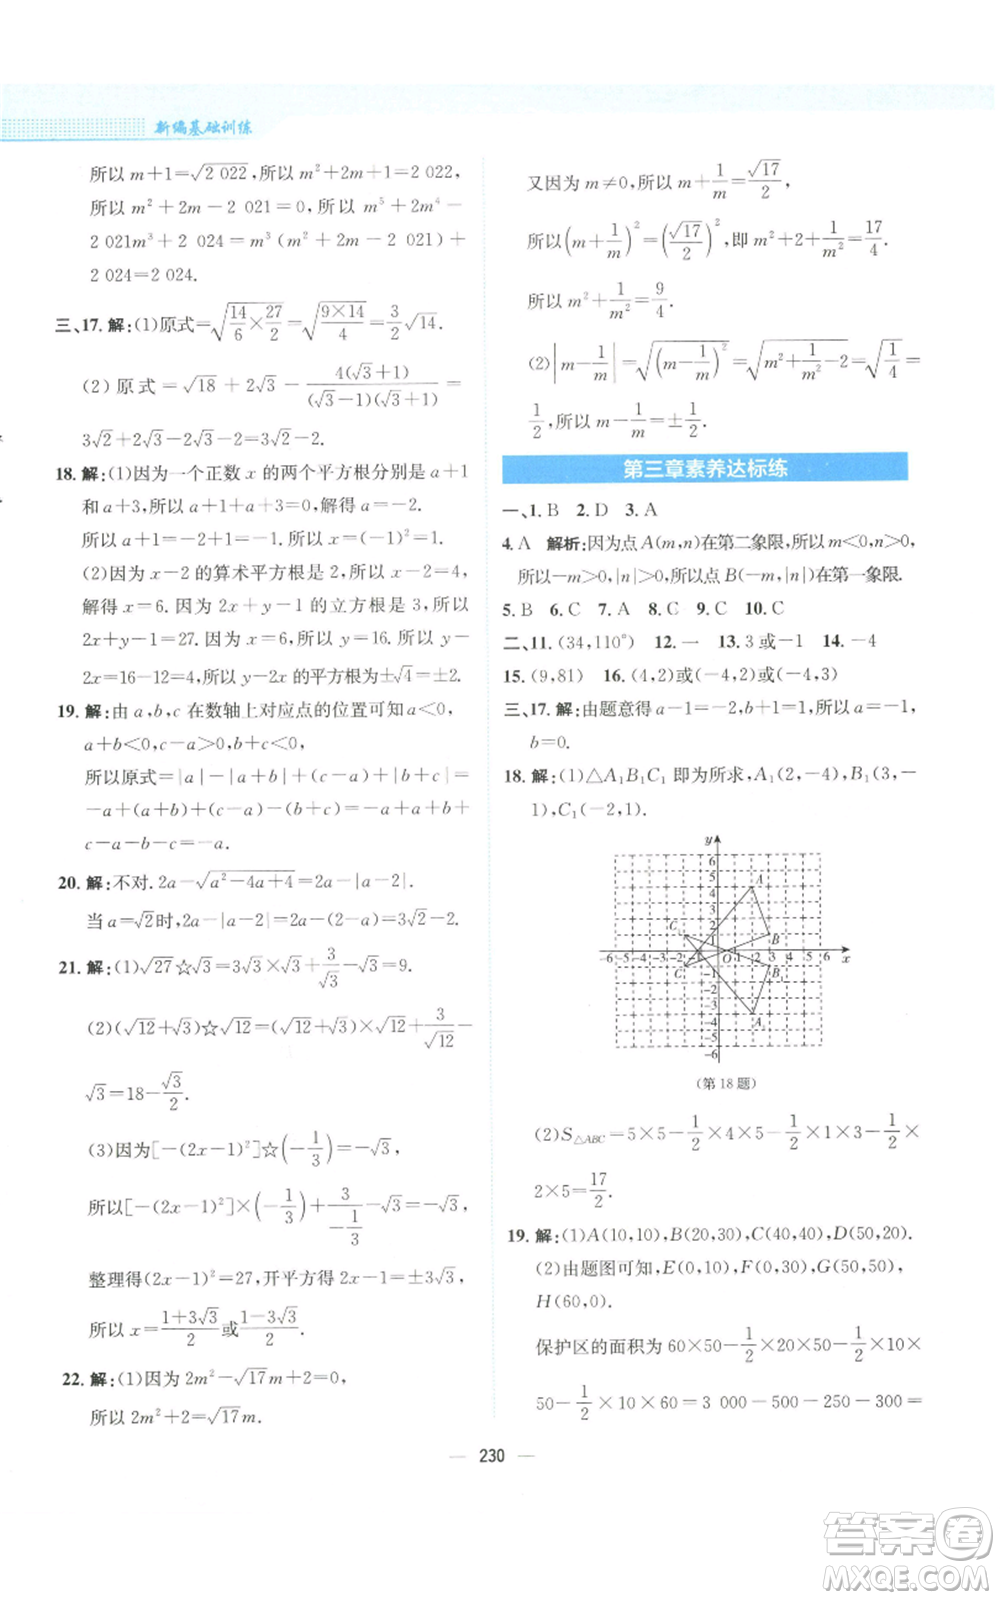 新编基础训练
所以 m+1=√2 022,所以 m²+2m+1=2 022,
所以 m²+2m-2 021=0,所以 m⁵+2m⁴-
2 021m³+2 024=m³(m²+2m-2 021)+
2 024=2 024.
三、17.解:(1)原式=√(14/6×27/2)=√(9×14/4)=3/2√14.
(2)原式=√18+2√3-4(√3+1)/((√3-1)(√3+1))=
3√2+2√3-2√3-2=3√2-2.
18.解:(1)因为一个正数 x 的两个平方根分别是 a+1
和 a+3,所以 a+1+a+3=0,所以 a=-2.
所以 a+1=-2+1=-1,所以 x=(-1)²=1.
(2)因为 x-2 的算术平方根是 2,所以 x-2=4,
解得 x=6.因为 2x+y-1 的立方根是 3,所以
2x+y-1=27.因为 x=6,所以 y=16.所以 y-
2x=16-12=4,所以 y-2x 的平方根是±√4=±2.
19.解:由 a,b,c 在数轴上对应点的位置可知 a<0,
a+b<0,c-a>0,b+c<0,
所以原式=|a|-|a+b|+|c-a|+|b+c|=
-a+(a+b)+(c-a)-(b+c)=-a+a+b+c-
a-b-c=-a.
20.解:不对.2a-√(a²-4a+4)=2a-|a-2|.
当 a=√2时,2a-|a-2|=2a-(2-a)=3√2-2.
21.解:(1)√27☆√3=3√3×√3+3/√3-√3=9.
(2)(√12+√3)☆√12=(√12+√3)×√12+3/√12-
√3=18-√3/2.
(3)因为[-(2x-1)²]☆(-1/3)=-√3,
所以[-(2x-1)²]×(-1/3)+3/(-1/3)-√3=-√3,
整理得(2x-1)²=27,开平方得 2x-1=±3√3,
所以 x=(1+3√3)/2或(1-3√3)/2.
22.解:(1)因为 2m²-√17m+2=0,
所以 2m²+2=√17m.
又因为 m≠0,所以 m+1/m=√17/2,
所以(m+1/m)²=(√17/2)²,即 m²+2+1/m²=17/4.
所以 m²+1/m²=9/4.
(2)|m-1/m|=√(m-1/m)²=√(m²+1/m²-2)=√(1/4)=
1/2,所以 m-1/m=±1/2.
第三章素养达标练
一、1.B 2.D 3.A
4.A 解析:因为点 A(m,n)在第二象限,所以 m<0,n>0,
所以-m>0,|n|>0,所以点 B(-m,|n|)在第一象限.
5.B 6.C 7.A 8.C 9.C 10.C
二、11.(34,110°) 12.一 13.3 或-1 14.-4
15.(9,81) 16.(4,2)或(-4,2)或(-4,3)
三、17.解:由题意得 a-1=-2,b+1=1,所以 a=-1,
b=0.
18.解:(1)△A₁B₁C₁ 即为所求,A₁(2,-4),B₁(3,-
1),C₁(-2,1).
y
6
5
4
3
2
1
A
B
C₁
-6 -5 -4 -3 -2 -1 O 1 2 3 4 5 6 x
C
B₁
A₁
-1
-2
-3
-4
-5
-6
(第 18 题)
(2)S△ABC=5×5-1/2×4×5-1/2×1×3-1/2×
2×5=17/2.
19.解:(1)A(10,10),B(20,30),C(40,40),D(50,20).
(2)由题图可知,E(0,10),F(0,30),G(50,50),
H(60,0).
保护区的面积为 60×50-1/2×20×50-1/2×10×
50-1/2×10×60=3 000-500-250-300=
— 230 —
答案卷
MXQE.COM